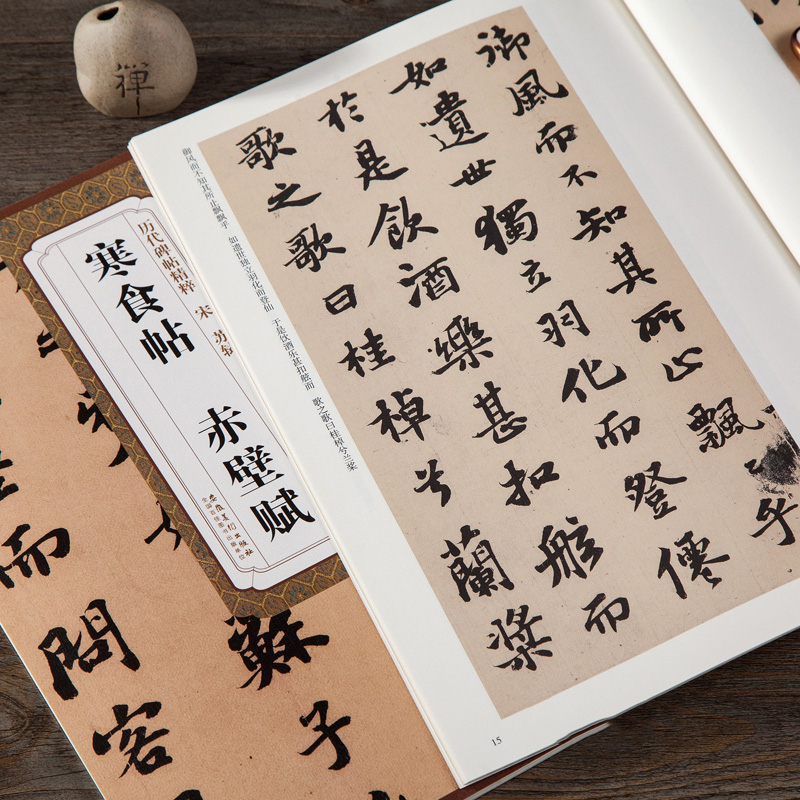 禪
御風而不知其所止飄〻乎
如遺世獨立羽化而登僊
於是飲酒樂甚扣舷而
歌之歌曰桂棹兮蘭槳
御风而不知其所止飘飘乎 如遗世独立羽化而登仙 于是饮酒乐甚扣舷而 歌之歌曰桂棹兮兰桨
15
历代碑帖精粹 宋 苏轼
寒食帖 赤壁赋
安徽美术出版社
全国百佳图书出版单位
蘇子
而問客